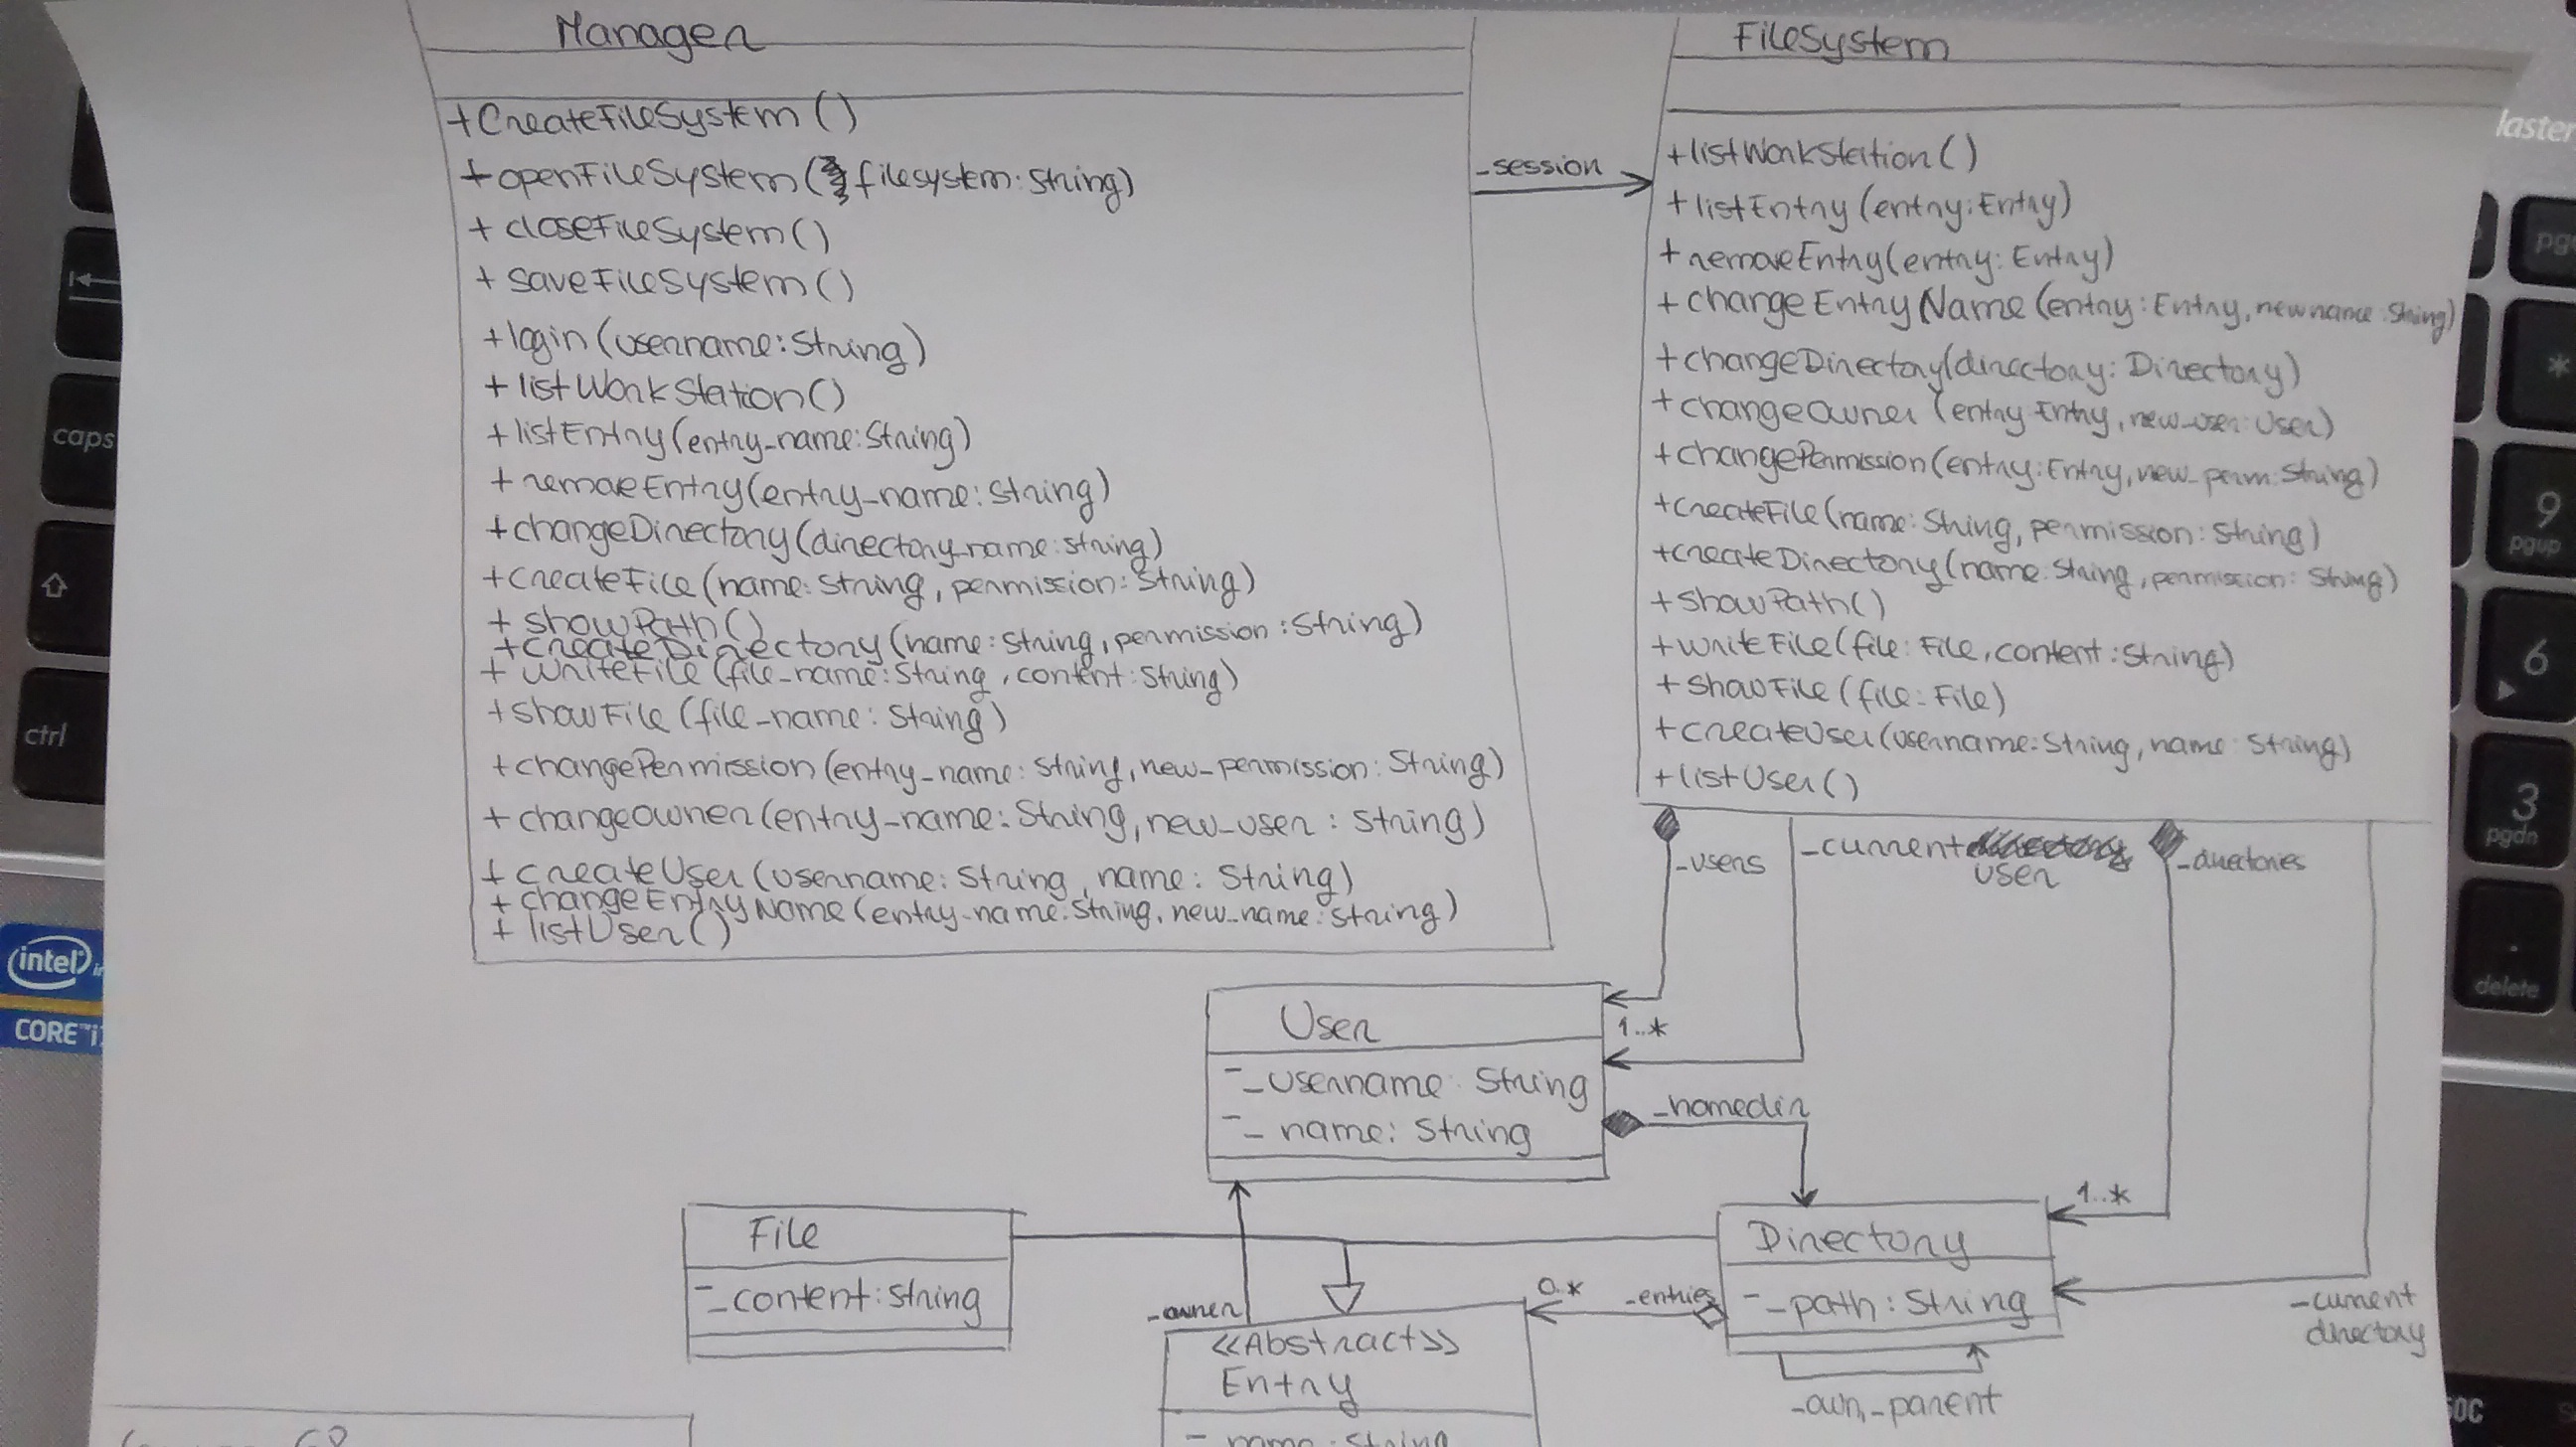 Manager
+CreateFileSystem()
+openFileSystem(filesystem:String)
+closeFileSystem()
+saveFileSystem()
+login(username:String)
+listWorkStation()
+listEntry(entry_name:String)
+removeEntry(entry_name:String)
+changeDirectory(directory_name:string)
+createFile(name:String, permission:String)
+showPath()
+createDirectory(name:String, permission:String)
+writeFile(file_name:String, content:String)
+showFile(file_name:String)
+changePermission(entry_name:String, new_permission:String)
+changeOwner(entry_name:String, new_user:String)
+createUser(username:String, name:String)
+changeEntryName(entry_name:String, new_name:String)
+listUser()
_session
FileSystem
+listWorkStation()
+listEntry(entry:Entry)
+removeEntry(entry:Entry)
+changeEntryName(entry:Entry, newname:String)
+changeDirectory(directory:Directory)
+changeOwner(entry:Entry, new_user:User)
+changePermission(entry:Entry, new_perm:String)
+createFile(name:String, permission:String)
+createDirectory(name:String, permission:String)
+showPath()
+writeFile(file:File, content:String)
+showFile(file:File)
+createUser(username:String, name:String)
+listUser()
_users
_current
user
_directories
1..*
User
-_username:String
-_name:String
_homedir
1..*
File
-_content:String
Directory
-_path:String
_owner
0..*
_entries
_current
directory
<<Abstract>>
Entry
-_name:String
_own,_parent
laster
caps
ctrl
intel
inside
CORE i
pg
*
9
pgup
6
3
pgdn
.
delete